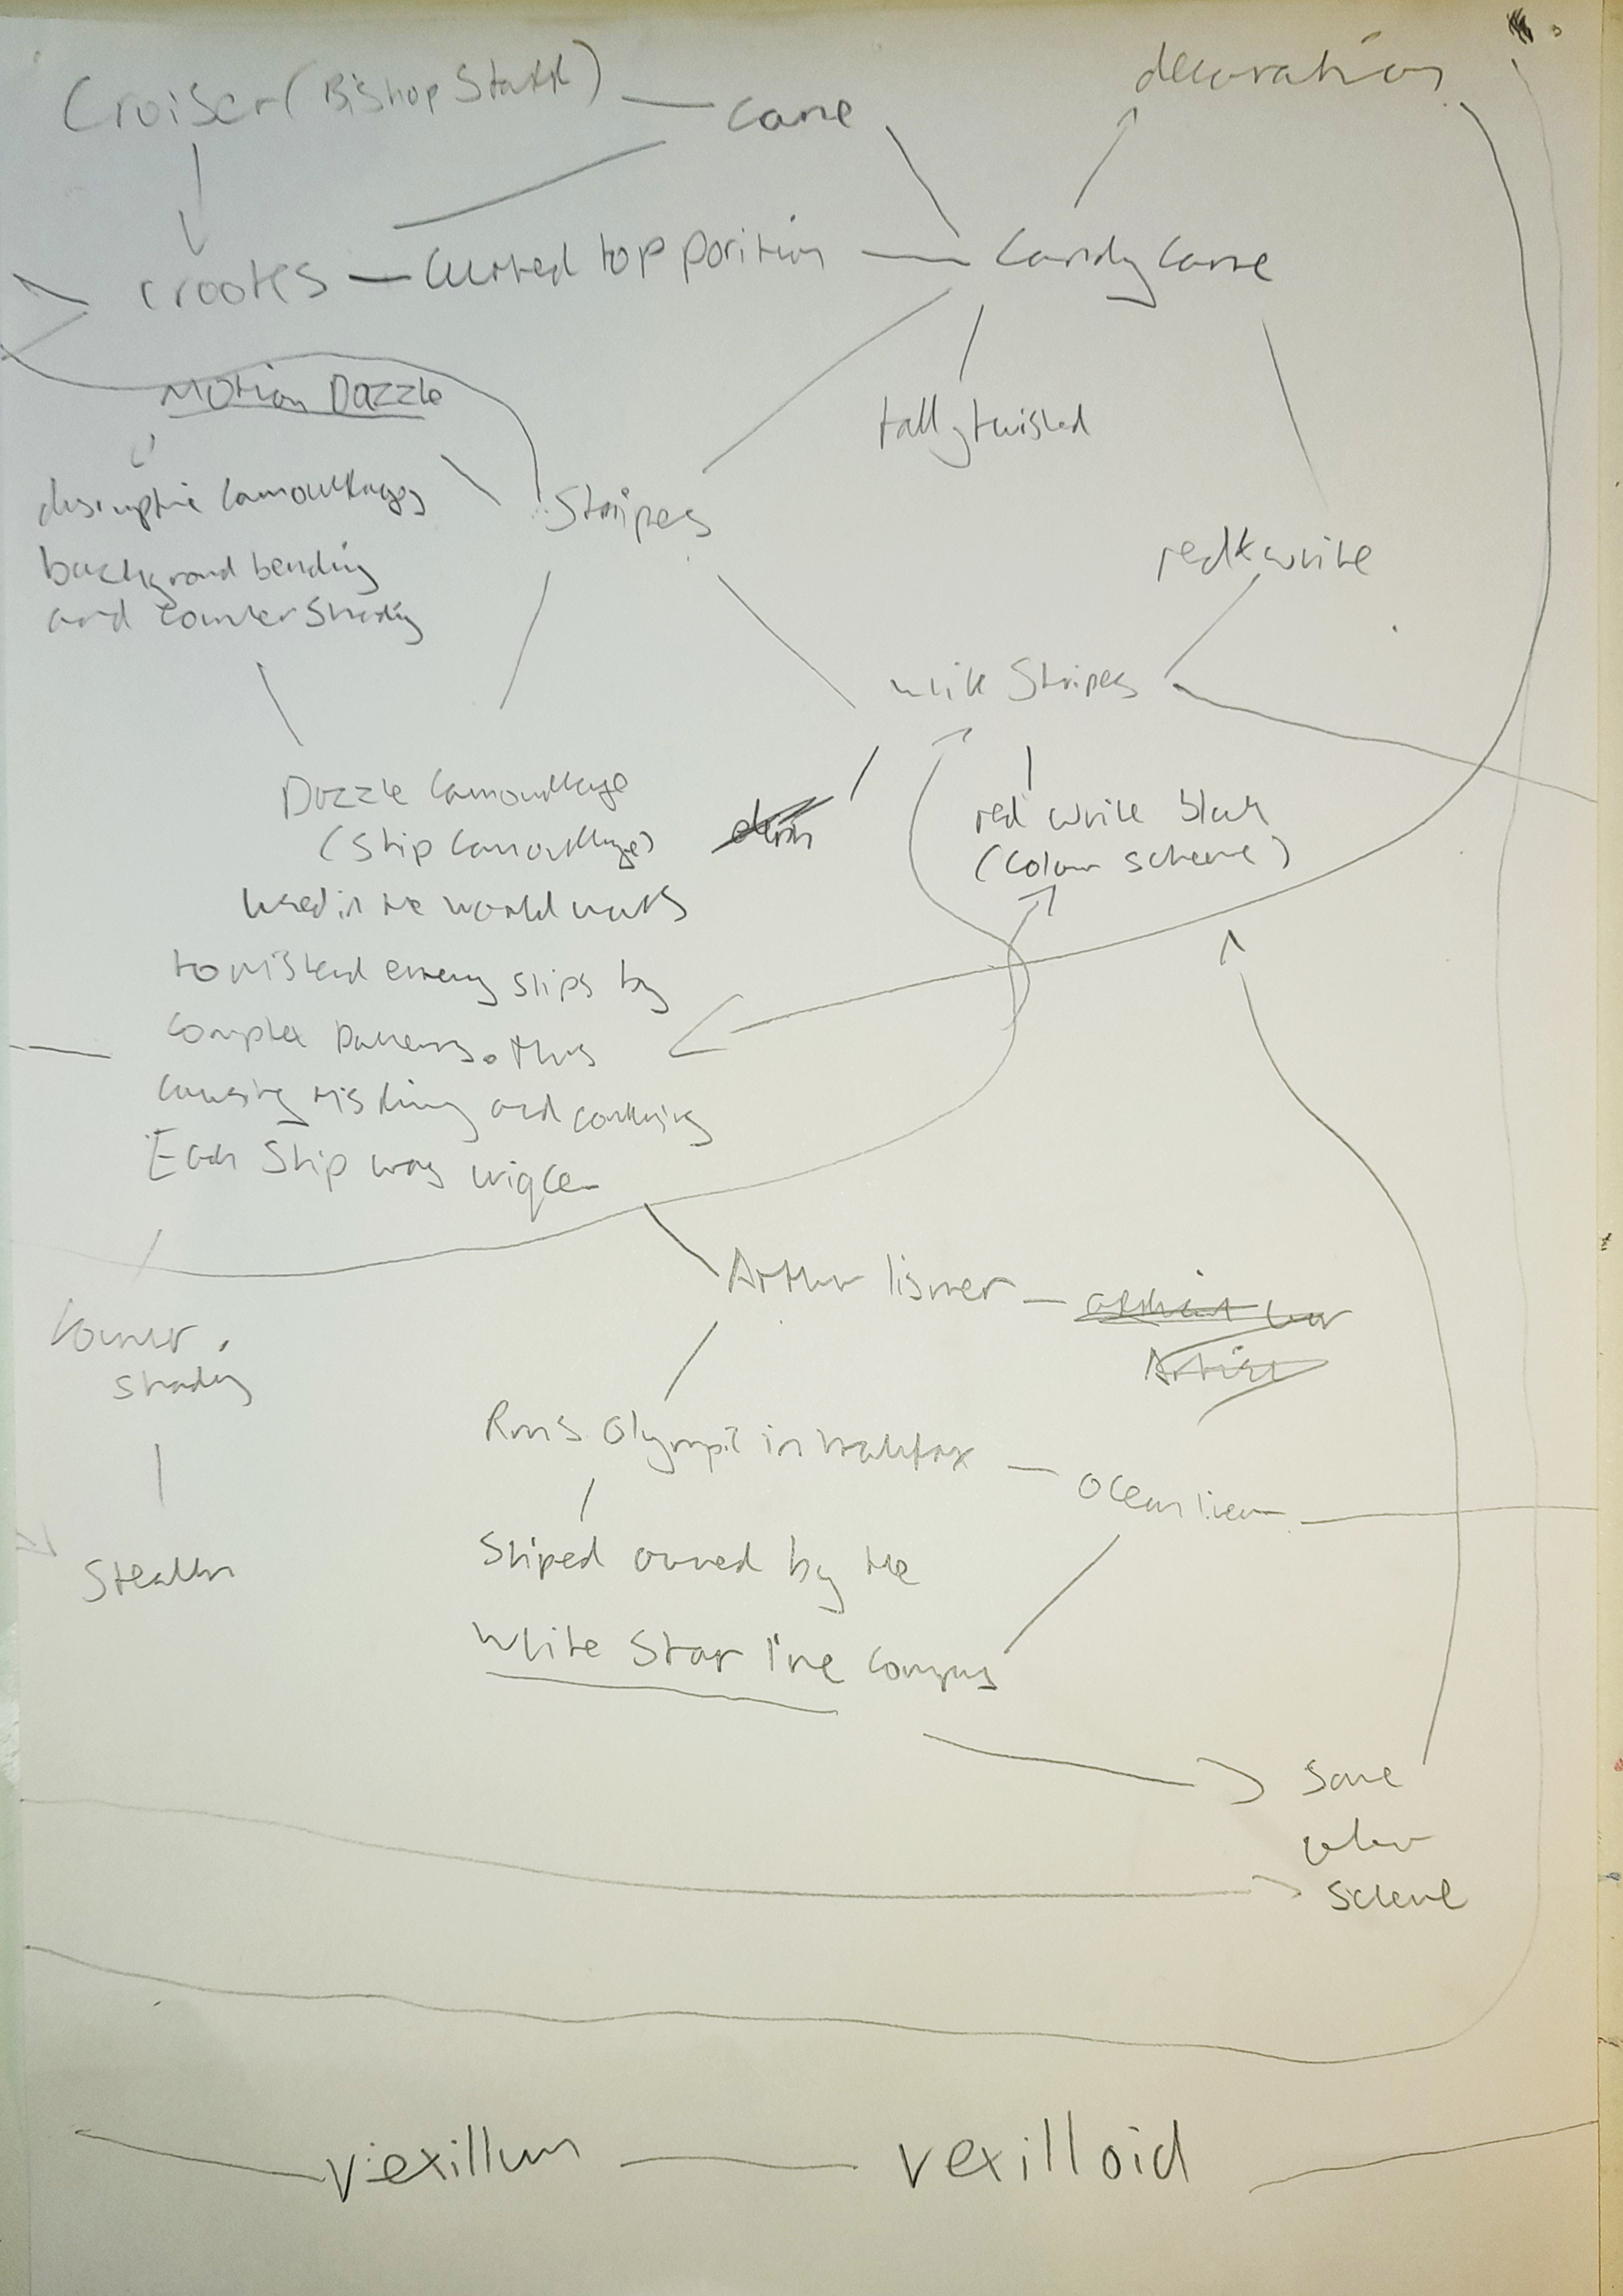 decoration
Croiser (Bishop Staff) — cane
crooks — Curved top portion — Candy Cane
Motion Dazzle
tall, twisted
disruptive camouflage,
Stripes
background bending
and countershading
red & white
white Stripes
Dazzle Camouflage
(Ship Camouflage)
red white black
(colour scheme)
used in the world wars
to mislead enemy ships by
complex patterns. thus
causing
and
Each Ship was uniqe
Arthur lismer —
Artist
Counter.
shading
Rms Olympic in halifax — ocean liner
Stealth
Shiped owned by the
White Star line company
Same
colour
scheme
vexillum — vexilloid